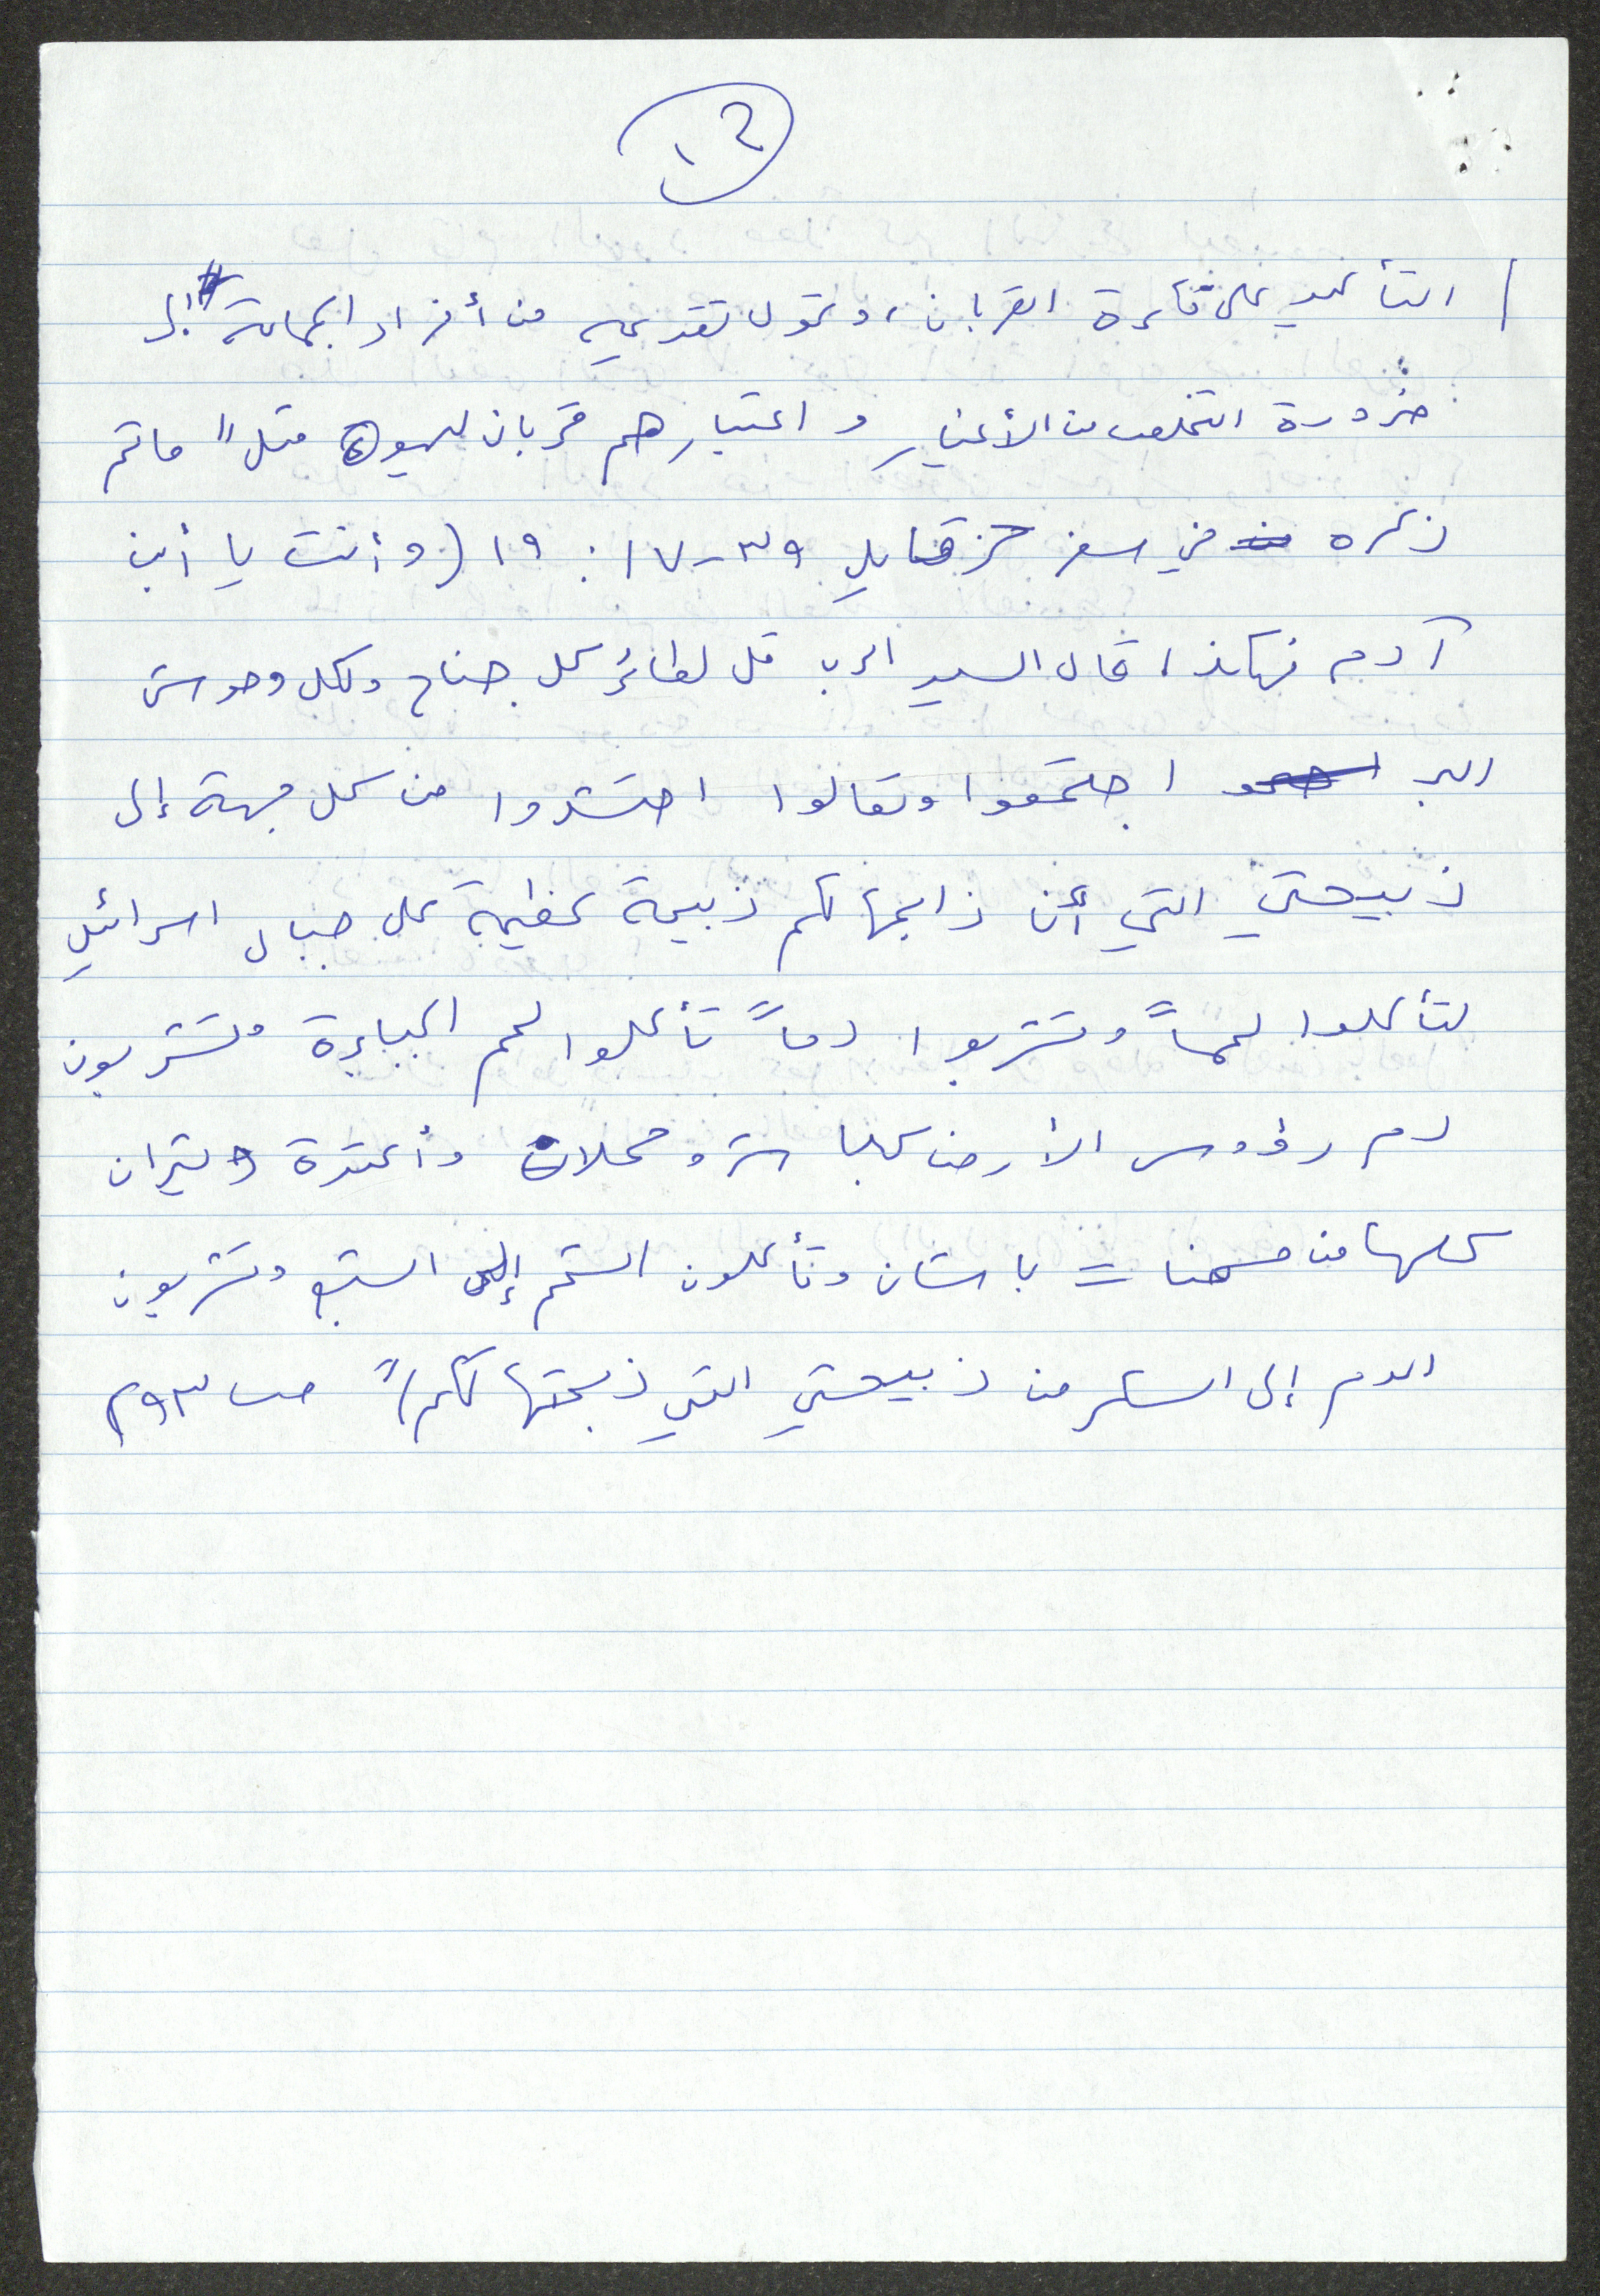 ١٢
/ التأكيد على فكرة القربان، وتحول تقديمه من أفراد الجماعة إلى
ضرورة التخلص من الأغيار واعتبارهم قربان ليهوه مثلاً ما تم
ذكره في سفر حزقيال ٣٩-١٧: ١٩ (وأنت يا أبن
آدم فهكذا قال السيد الرب قل لطائر كل جناح ولكل وحوش
البر اجتمعوا وتعالوا احتشدوا من كل جهة إلى
ذبيحتي التي أنا ذابحها لكم ذبيحة عظيمة على جبال اسرائيل
لتأكلوا لحماً وتشربوا دماً تأكلوا لحم الجبابرة وتشربون
دم رؤوس الأرض كباش وحملان وأعتدة وثيران
كلها من مسمنات باشان وتأكلون الشحم إلى الشبع وتشربون
الدم إلى السكر من ذبيحتي التي ذبحتها لكم)